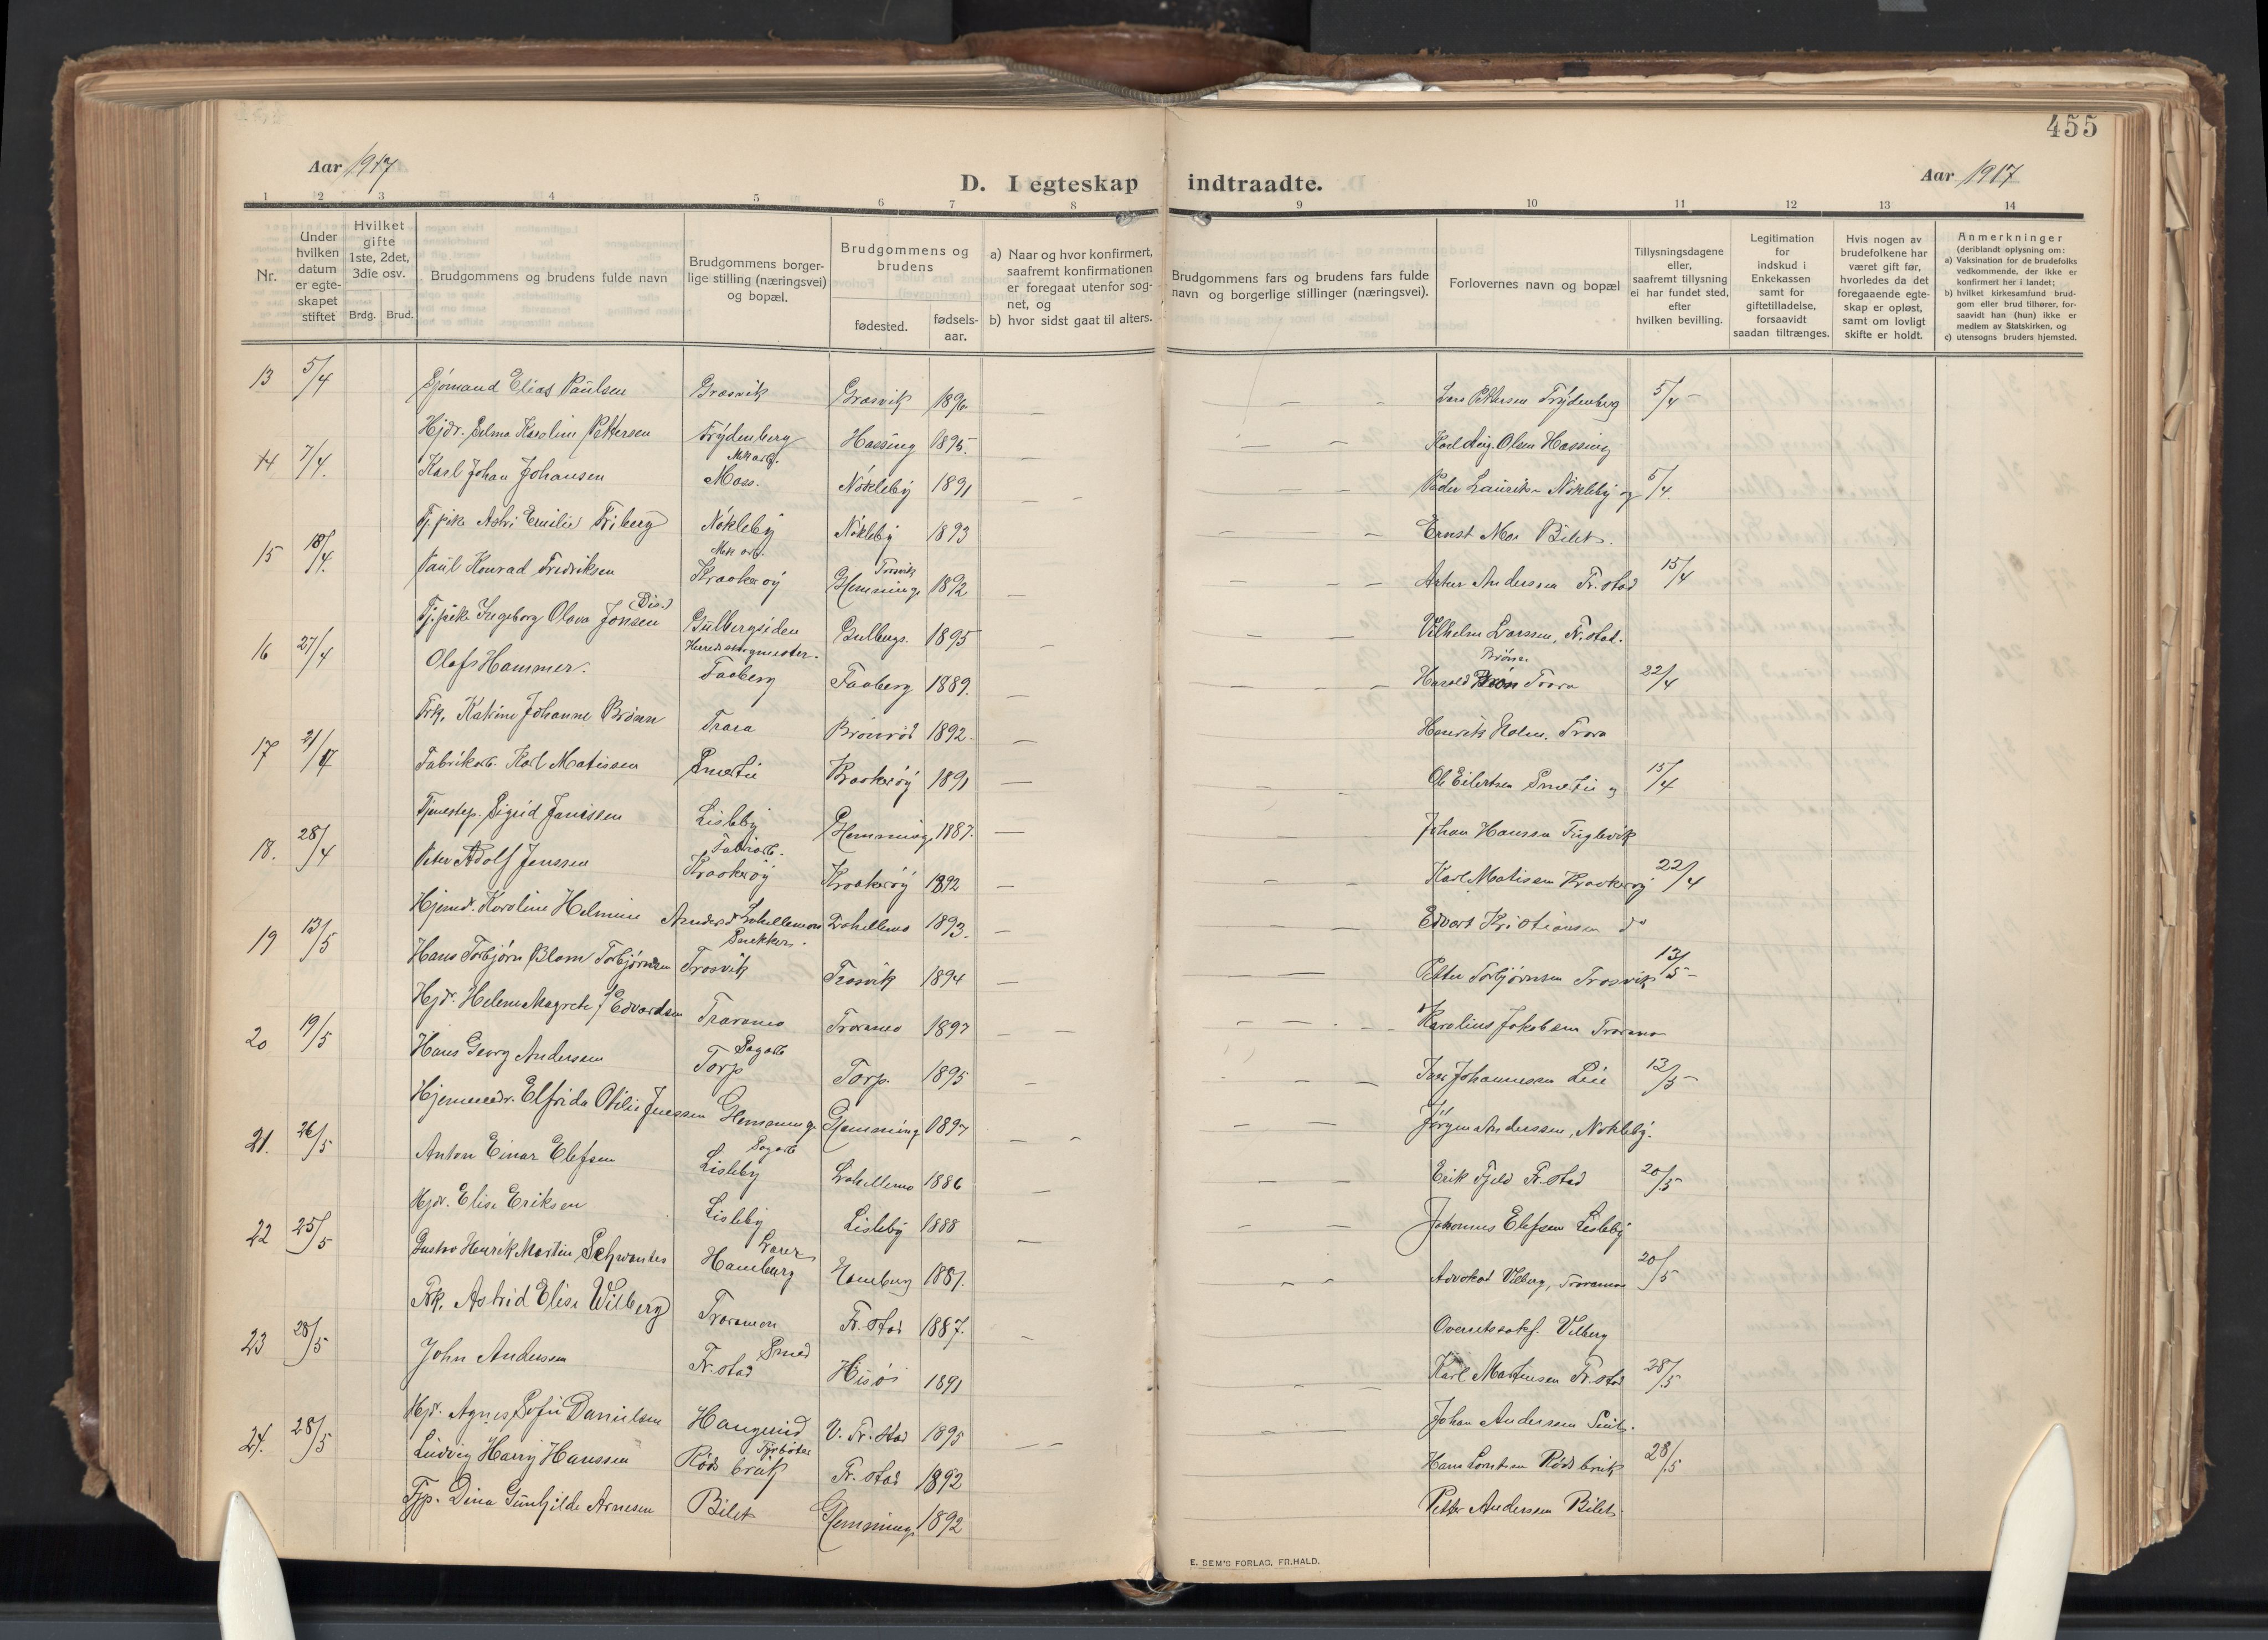 455
Aar 1917
D. I egteskap indtraadte.
Aar 1917
1 2 3 4 5 6 7 8 9 10 11 12 13 14
Nr.
Under hvilken datum er egteskapet stiftet
Hvilket gifte 1ste, 2det, 3die osv.
Brdg. Brud.
Brudgommens og brudens fulde navn
Brudgommens borgerlige stilling (næringsvei) og bopæl.
Brudgommens og brudens
fødested.
fødselsaar.
a) Naar og hvor konfirmert, saafremt konfirmationen er foregaat utenfor sognet, og
b) hvor sidst gaat til alters.
Brudgommens fars og brudens fars fulde navn og borgerlige stillinger (næringsvei).
Forlovernes navn og bopæl
Tillysningsdagene eller, saafremt tillysning ei har fundet sted, efter hvilken bevilling.
Legitimation for indskud i Enkekassen samt for giftetilladelse, forsaavidt saadan tiltrænges.
Hvis nogen av brudefolkene har været gift før, hvorledes da det foregaaende egteskap er opløst, samt om lovligt skifte er holdt.
Anmerkninger
(deriblandt oplysning om:
a) Vaksination for de brudefolks vedkommende, der ikke er konfirmert her i landet;
b) hvilket kirkesamfund brudgom eller brud tilhører, forsaavidt han (hun) ikke er medlem av Statskirken, og
c) utensogns bruders hjemsted.
13 5/4 Sjømand Elias Paulsen Græsvik Græsvik 1896 Lars Pettersen Frydenberg 5/4
Hjdr. Selma Karoline Pettersen Frydenberg Hassing 1895. Karl Aug. Olsen Hassing
14 7/4. Karl Johan Johansen Mek arb. Moss. Nökleby 1891 Peder Lauritsen Nökleby og 5/4.
Tj.pike Astri Emilie Friberg Nökleby Nökleby 1893 Ernst Moe Bilet.
15 18/4. Paul Konrad Fredriksen Mek arb. Kraakeröy Trosvik Glemminge 1892 Artur Anderssen Fr.stad 15/4
Tj.pike Ingeborg Olava Jonsen (Dis.) Gulbergsiden Gulbergs. 1895 Vilhelm Larssen, Fr.stad.
16 27/4 Olaf Hammer. Herredsskogmester. Faaberg Faaberg 1889. Harald Brönn Trara 22/4
Frk. Katrine Johanne Brönn Trara Brönnröd 1892. Henrik Holm. Trara
17 21/4 Fabrikarb. Karl Matissen Smertu Kraakeröy 1891 Ole Eilertsen Smertu og 15/4
Tjenestep. Sigrid Janissen Lisleby Glemminge 1887. Johan Hanssen Fuglevik
18. 28/4 Peter Adolf Jenssen Fabrarb. Kraakeröy Kraakeröy 1892 Karl Matisen Kraakeröy 22/4
Hjemd. Karoline Helmine Andersd Lahellemoen Lahellemo 1893. Edvart Kristiansen do
19 13/5 Hans Torbjörn Blom Torbjörnsen Snekker. Trosvik Trosvik 1894 Petter Torbjörnsen Trosvik 13/5
Hjdr. Helene Magrete Edvardsen Traramo Traramo 1897 Karolius Jakobsen Traramo
20 19/5 Hans Georg Andersen Sagarb Torp Torp. 1895 Ivar Johannessen Lie 13/5
Hjemmedr. Elfrida Otilie Jenssen Glemminge Glemminge 1897 Jörgen Anderssen, Nökleby.
21. 26/5 Anton Einar Elefsen Sagarb Lisleby Lahellemo 1886 Erik Fjeld Fr.stad 20/5
Hjdr. Elise Eriksen Lisleby Lisleby 1888 Johannes Elefsen Lisleby
22 25/5 Gustav Henrik Martin Schwantes Lærer Hamburg Hamburg 1881. Advokat Vilberg, Traramoen 20/5
Frk. Astrid Elise Wilberg Traramoen Fr.stad 1887. Overretssakf. Vilberg
23 28/5 John Anderssen Smed Fr.stad Hisö 1891 Karl Martinsen Fr.stad 28/5
Hjd. Agnes Sofie Danielsen Haugeund V. Fr.stad 1895 Johan Anderssen
24. 28/5 Ludvig Harry Hanssen Fyrböter Röds bruk Fr.stad 1892 Hans Lorntsen Röds bruk 28/5
Tjp. Dina Gunhilde Arnesen Bilet Glemminge 1892 Petter Anderssen Bilet.
E. SEM'S FORLAG, FR.HALD.